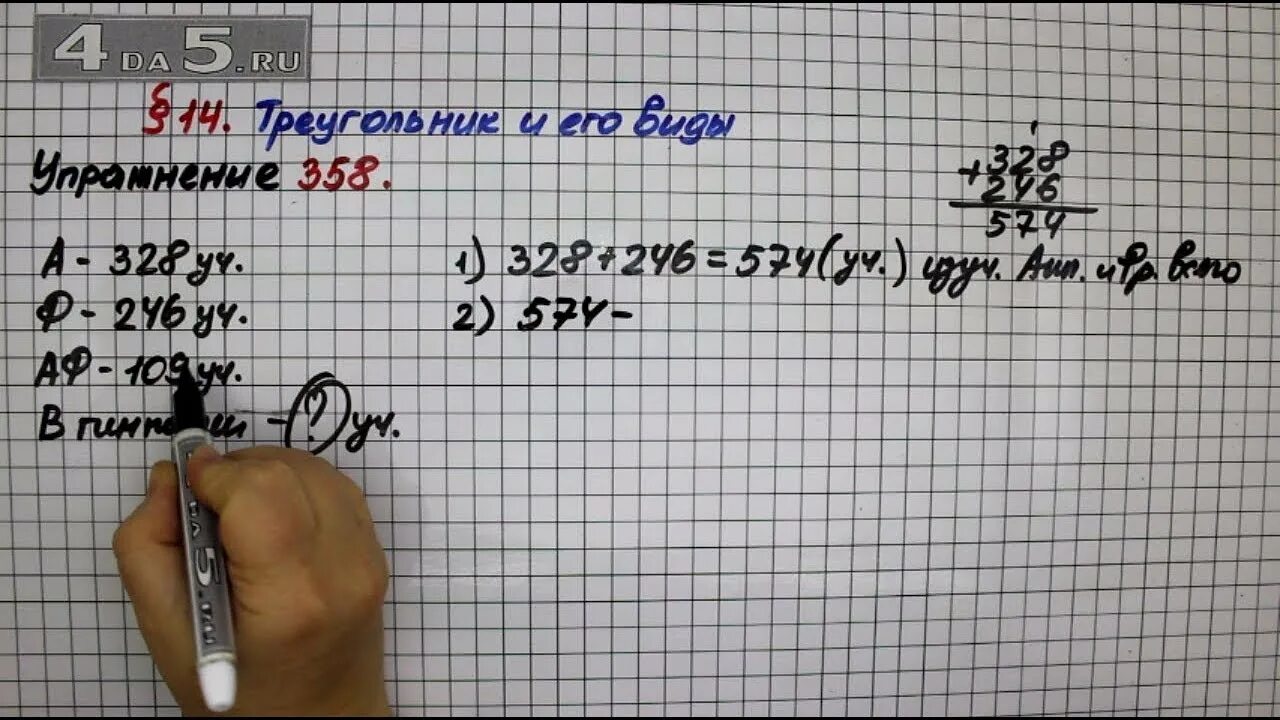 4 DA 5.RU
§ 14. Треугольник и его виды
Упражнение 358.
А - 328 уч.
Ф - 246 уч.
АФ - 109 уч.
В - ? уч.
1
+ 328
246
574
1) 328 + 246 = 574 (уч.) изуч. Анг. и Фр. вето
2) 574 -
DA 5.RU